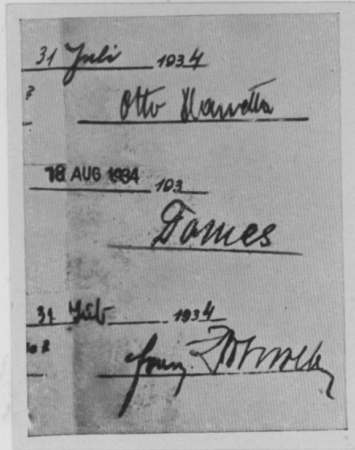 31 Juli 1934
Otto
18 AUG 1934 193
Domes
31 Juli 1934
Franz